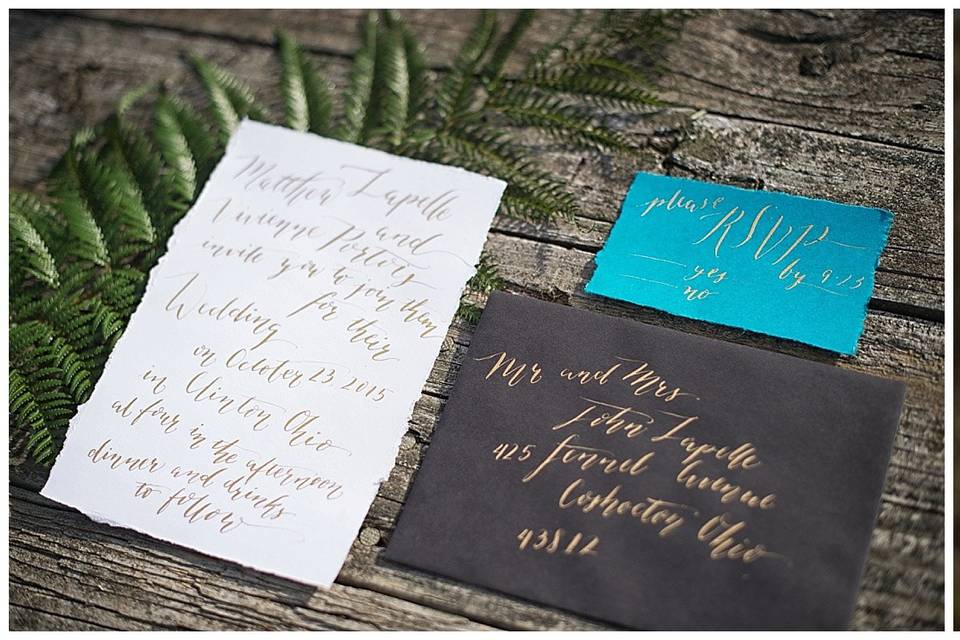 Matthew Lapelle
and
Vivienne Portors
invite you to join them
for their
Wedding
on October 23, 2015
in Clinton Ohio
at four in the afternoon
dinner and drinks
to follow
please
RSVP
by 9.23
yes
no
Mr and Mrs
John Lapelle
425 Fennel Avenue
Coshocton Ohio
43812